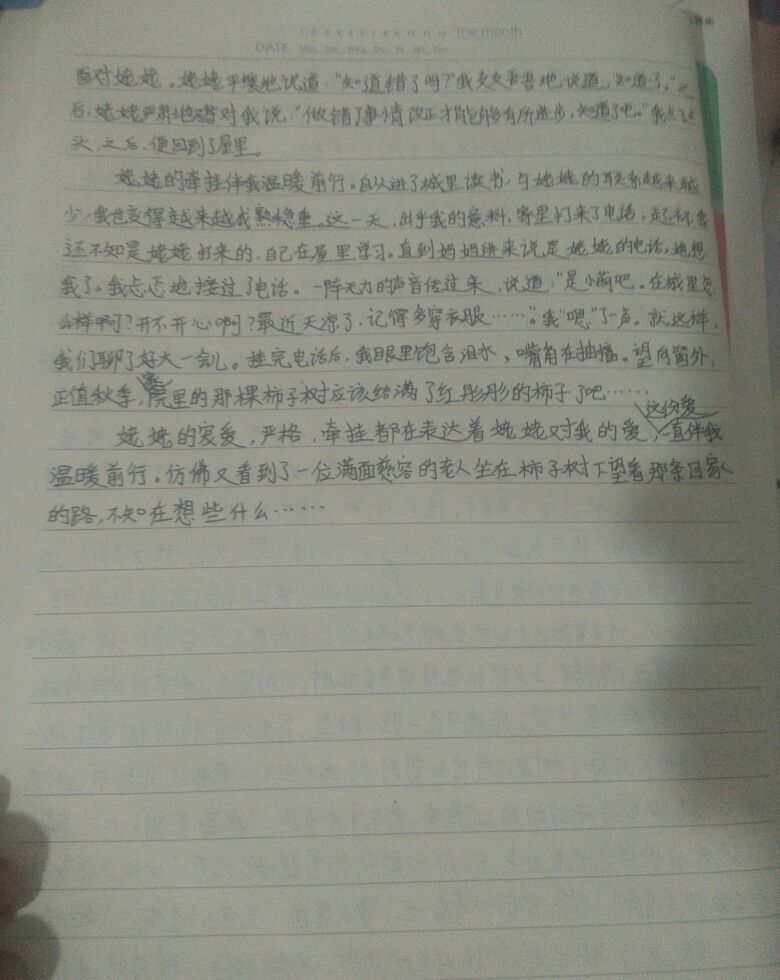 The month
DATE Mon Tue Wed Thu Fri Sat Sun
面对姥姥。姥姥平缓地说道:"知道错了吗?"我支支吾吾地说道,"知道了。"之
后,姥姥严肃地对我说:"做错了事情改正才能够有所进步,知道了吧。"我点了点
头,之后,便回到了屋里。
姥姥的牵挂伴我温暖前行。自从进了城里读书,与姥姥的联系越来越
少,我也变得越来越成熟稳重。这一天,出乎我的意料,家里打来了电话。起初,我
还不知是姥姥打来的,自己在屋里学习。直到妈妈进来说是姥姥的电话,她想
我了。我忐忑地接过了电话。一阵无力的声音传过来,说道:"是小萌吧。在城里怎
么样啊?开不开心啊?最近天凉了,记得多穿衣服……"。我"嗯"了一声。就这样,
我们聊了好大一会儿。挂完电话后,我眼里饱含泪水,嘴角在抽搐。望向窗外,
正值秋季,家院里的那棵柿子树应该结满了红彤彤的柿子了吧……
姥姥的宠爱,严格,牵挂都在表达着姥姥对我的爱,这份爱一直伴我
温暖前行。仿佛又看到了一位满面慈容的老人坐在柿子树下望着那条回家
的路,不知在想些什么……